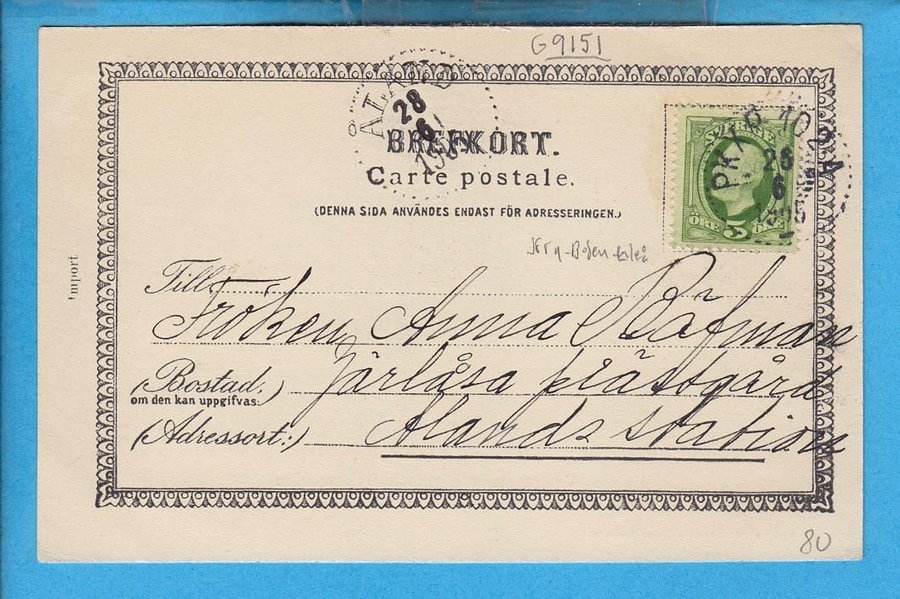 G9151
ÅLAND
28
6
BREFKORT.
Carte postale.
(DENNA SIDA ANVÄNDES ENDAST FÖR ADRESSERINGEN.)
SVERIGE
5
ÖRE ÖRE
PKXP 102 A
6
Import
Till
Fröken Anna
(Bostad.)
om den kan uppgifvas:
Järlåsa prästgård
(Adressort:)
Ålands station
80